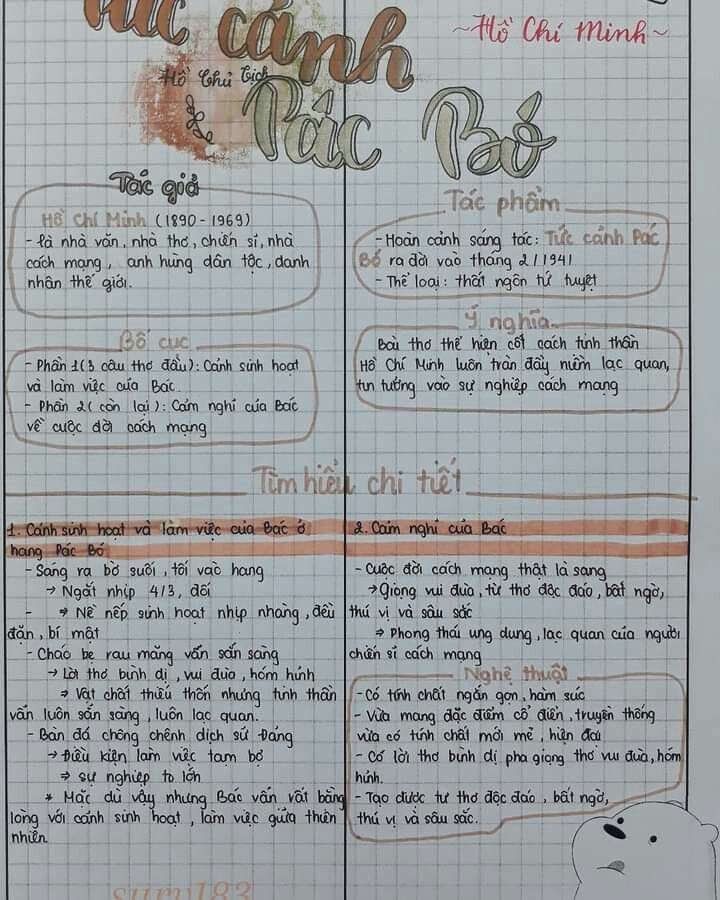 Tức cảnh
~Hồ Chí Minh~
Hồ Chủ Tịch
Pác Bó
Tác giả
Hồ Chí Minh (1890 - 1969)
- là nhà văn, nhà thơ, chiến sĩ, nhà
cách mạng, anh hùng dân tộc, danh
nhân thế giới.
Tác phẩm
- Hoàn cảnh sáng tác: Tức cảnh Pác
Bó ra đời vào tháng 2/1941
- Thể loại: thất ngôn tứ tuyệt
Bố cục
- Phần 1(3 câu thơ đầu): Cảnh sinh hoạt
và làm việc của Bác.
- Phần 2( còn lại): Cảm nghĩ của Bác
về cuộc đời cách mạng
Ý nghĩa
Bài thơ thể hiện cốt cách tinh thần
Hồ Chí Minh luôn tràn đầy niềm lạc quan,
tin tưởng vào sự nghiệp cách mạng
Tìm hiểu chi tiết
1. Cảnh sinh hoạt và làm việc của Bác ở
hang Pác Bó
- Sáng ra bờ suối, tối vào hang
→ Ngắt nhịp 4/3, đối
- ⇒ Nề nếp sinh hoạt nhịp nhàng, đều
đặn, bí mật
- Cháo bẹ rau măng vẫn sẵn sàng
→ Lời thơ bình dị, vui đùa, hóm hỉnh
⇒ Vật chất thiếu thốn nhưng tinh thần
vẫn luôn sẵn sàng, luôn lạc quan.
- Bàn đá chông chênh dịch sử Đảng
→ Điều kiện làm việc tạm bợ
⇒ sự nghiệp to lớn
* Mặc dù vậy nhưng Bác vẫn vất bằng
lòng với cảnh sinh hoạt, làm việc giữa thiên
nhiên.
2. Cảm nghĩ của Bác
- Cuộc đời cách mạng thật là sang
→ Giọng vui đùa, từ thơ độc đáo, bất ngờ,
thú vị và sâu sắc
⇒ Phong thái ung dung, lạc quan của người
chiến sĩ cách mạng
Nghệ thuật
- Có tính chất ngắn gọn, hàm súc
- Vừa mang đặc điểm cổ điển, truyền thống
vừa có tính chất mới mẻ, hiện đại
- Có lời thơ bình dị pha giọng thơ vui đùa, hóm
hỉnh.
- Tạo được tứ thơ độc đáo, bất ngờ,
thú vị và sâu sắc.
suru183